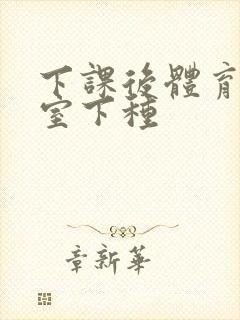 下課後體育
室下種
章新華